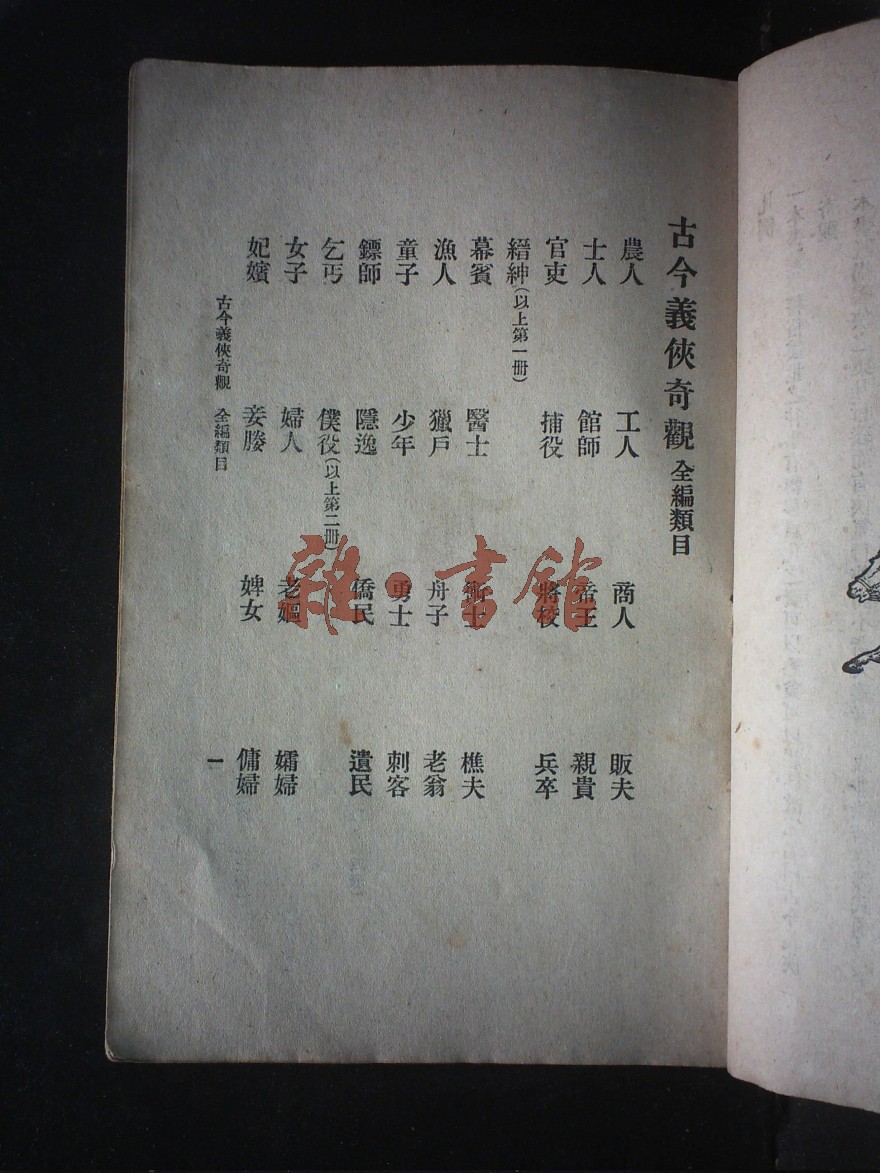 古今義俠奇觀 全編類目
農人 工人 商人 販夫
士人 館師 帝王 親貴
官吏 捕役 將校 兵卒
縉紳(以上第一冊)
幕賓 醫士 術士 樵夫
漁人 獵戶 舟子 老翁
童子 少年 勇士 刺客
鏢師 隱逸 僑民 遺民
乞丐 僕役(以上第二冊)
女子 婦人 老嫗 孀婦
妃嬪 妾媵 婢女 傭婦
古今義俠奇觀 全編類目 一
雜·書館